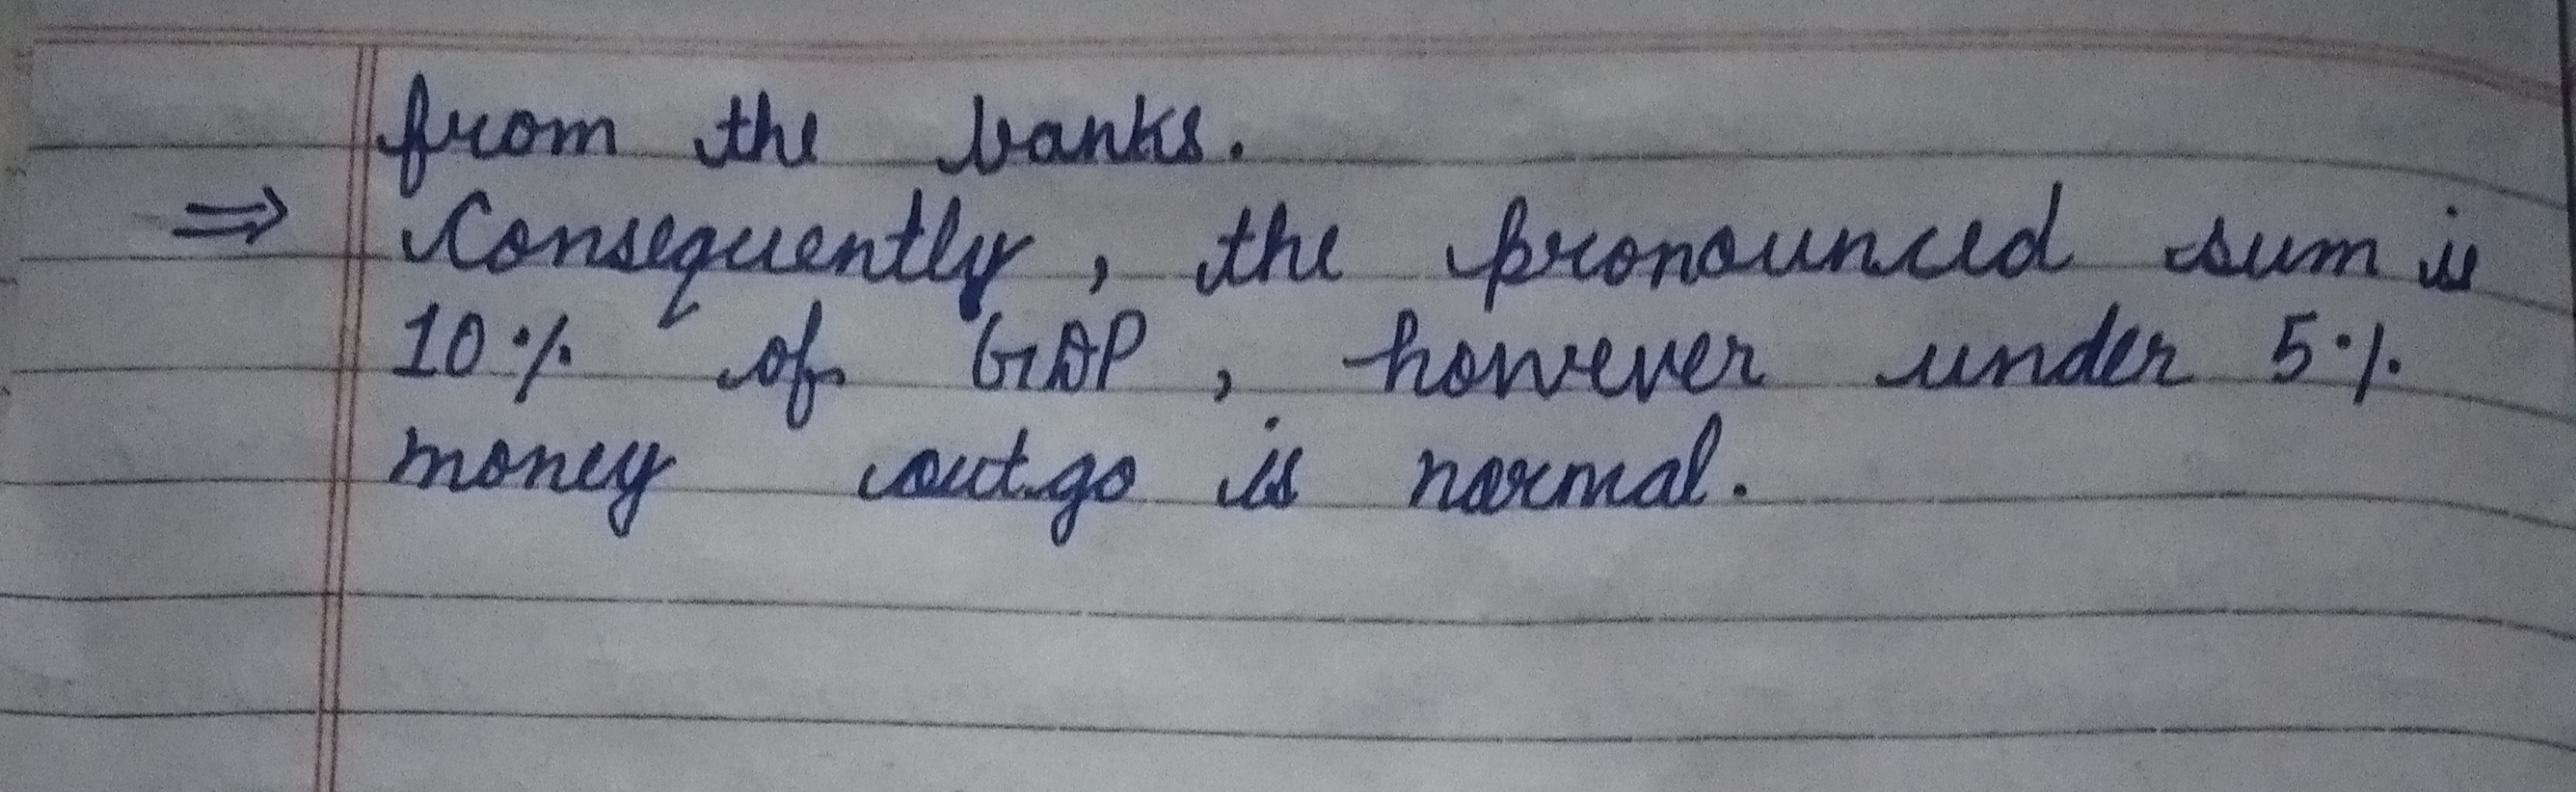 from the banks.
⇒ Consequently, the pronounced sum is
10% of GDP, however under 5%
money outgo is normal.